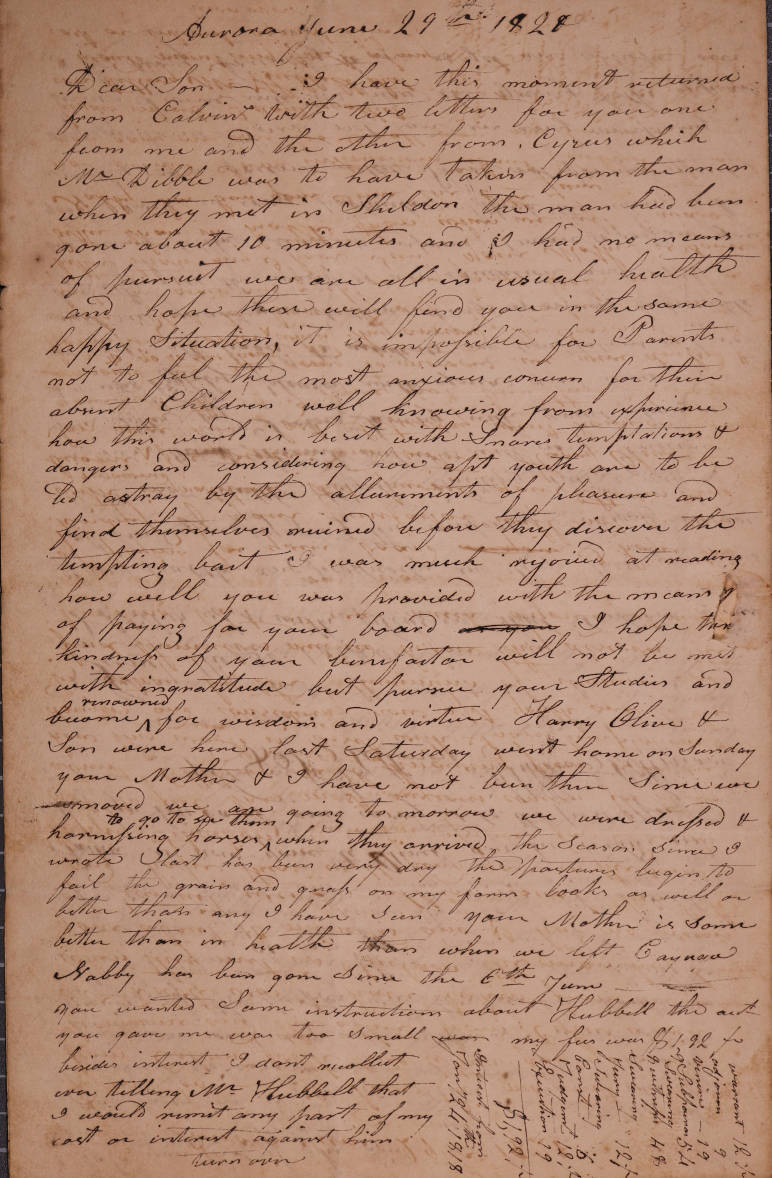 Aurora June 29th 1828
Dear Son — I have this moment returned
from Calvins with two letters for you one
from me and the other from Cyrus which
Mr Dibble was to have taken from the man
when they met in Sheldon the man had been
gone about 10 minutes and I had no means
of pursuit we are all in usual health
and hope these will find you in the same
happy Situation, it is impossible for Parents
not to feel the most anxious concern for their
absent Children well knowing from experience
how this world is beset with Snares temptations &
dangers and considering how apt youth are to be
led astray by the allurements of pleasure and
find themselves ruined before they discover the
tempting bait I was much rejoiced at reading
how well you was provided with the means of
of paying for your board I hope the
kindness of your benefactor will not be met
with ingratitude but pursue your Studies and
become renowned for wisdom and virtue Harry Olive &
Son were here last Saturday went home on Sunday
your Mother & I have not been there Since we
removed we are going to morrow we were dressed &
harnissing horses to go to see them when they arrived the season Since I
wrote last has been very dry the pastures begin to
fail the grain and grass on my farm looks as well or
better than any I have seen your Mother is some
better than in health than when we left Cayuga
Nabby has been gone Since the 6th June
you wanted Some instruction about Hubbell the act
you gave me was too small my fees was $1,92
besides interest I dont recollect
ever telling Mr Hubbell that
I would remit any part of my
cost or interest against him
turn over
warrant 12 ½
adjourn 9
venire — 19
Subpoena 54
Swearing
Witness 48
Swearing
Jury — 12 ½
Judgment 12 ½
Execution 19
$1,92
Interest from
Jany 24th 1818